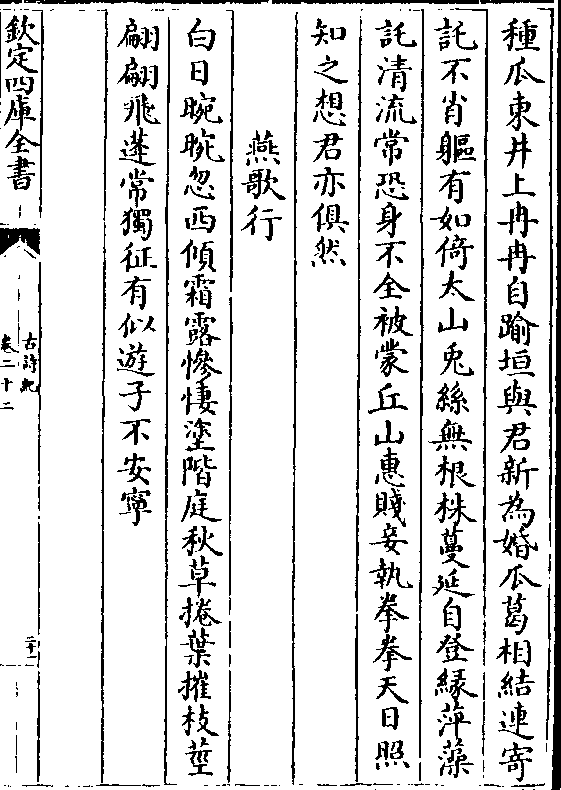 種瓜東井上冉冉自踰垣與君新為婚瓜葛相結連寄
託不肖軀有如倚太山兎絲無根株蔓延自登緣萍藻
託清流常恐身不全被蒙丘山惠賤妾執拳拳天日照
知之想君亦俱然
燕歌行
白日晼晼忽西傾霜露慘悽塗階庭秋草捲葉摧枝莖
翩翩飛蓬常獨征有似遊子不安寧
欽定四庫全書
古詩紀
卷二十二
二十一